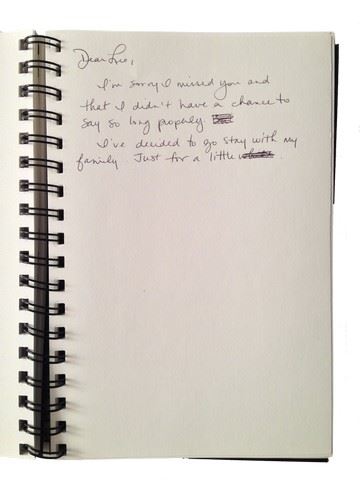 Dear Leo,
I'm sorry I missed you and
that I didn't have a chance to
say so long properly.
I've decided to go stay with my
family. Just for a little